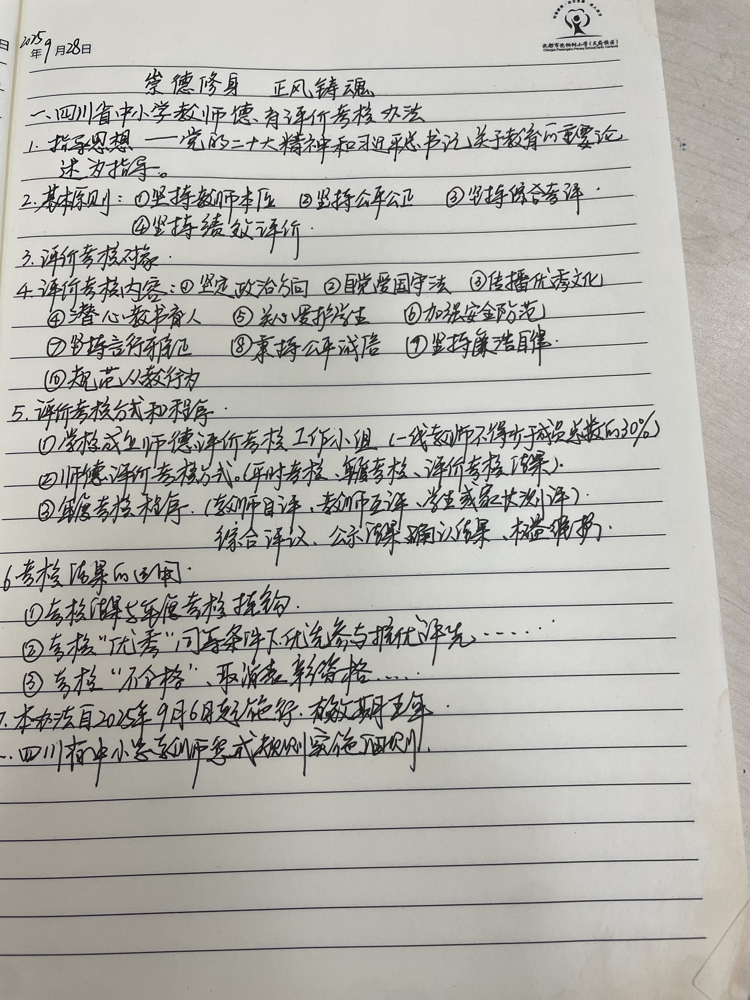 2025
年9月28日
崇德修身 正风铸魂
一、四川省中小学教师德育评价考核办法
1. 指导思想——党的二十大精神和习近平总书记关于教育的重要论
述为指导。
2. 基本原则：①坚持教师本位 ②坚持公平公正 ③坚持综合考评.
④坚持绩效评价.
3. 评价考核对象.
4. 评价考核内容：①坚定政治方向 ②自觉爱国守法 ③传播优秀文化
④潜心教书育人 ⑤关心爱护学生 ⑥加强安全防范
⑦坚持言行雅正 ⑧秉持公平诚信 ⑨坚持廉洁自律.
⑩规范从教行为
5. 评价考核方式和程序.
①学校成立师德评价考核工作小组（一线教师不得少于成员总数的30%）
②师德评价考核方式.（平时考核、年度考核、评价考核结果）.
③年度考核程序.（教师自评、教师互评、学生或家长测评）.
综合评议、公示结果 确认结果、权益维护.
6 考核结果的运用.
①考核结果与年度考核挂钩.
②考核“优秀”同等条件下优先参与推优评先......
③考核“不合格”、取消 资格....
7. 本办法自2025年9月6日起施行.有效期五年.
四川省中小学教师 规则实施细则.